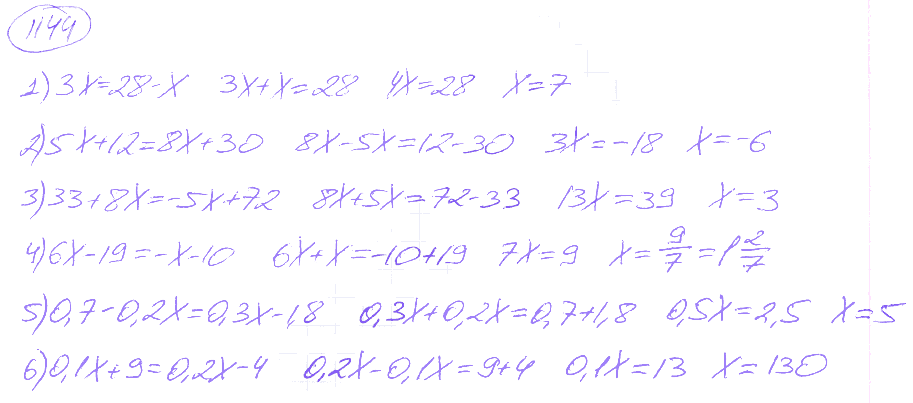 1144
1) 3x=28-x 3x+x=28 4x=28 x=7
2) 5x+12=8x+30 8x-5x=12-30 3x=-18 x=-6
3) 33+8x=-5x+72 8x+5x=72-33 13x=39 x=3
4) 6x-19=-x-10 6x+x=-10+19 7x=9 x=9/7=1 2/7
5) 0,7-0,2x=0,3x-1,8 0,3x+0,2x=0,7+1,8 0,5x=2,5 x=5
6) 0,1x+9=0,2x-4 0,2x-0,1x=9+4 0,1x=13 x=130